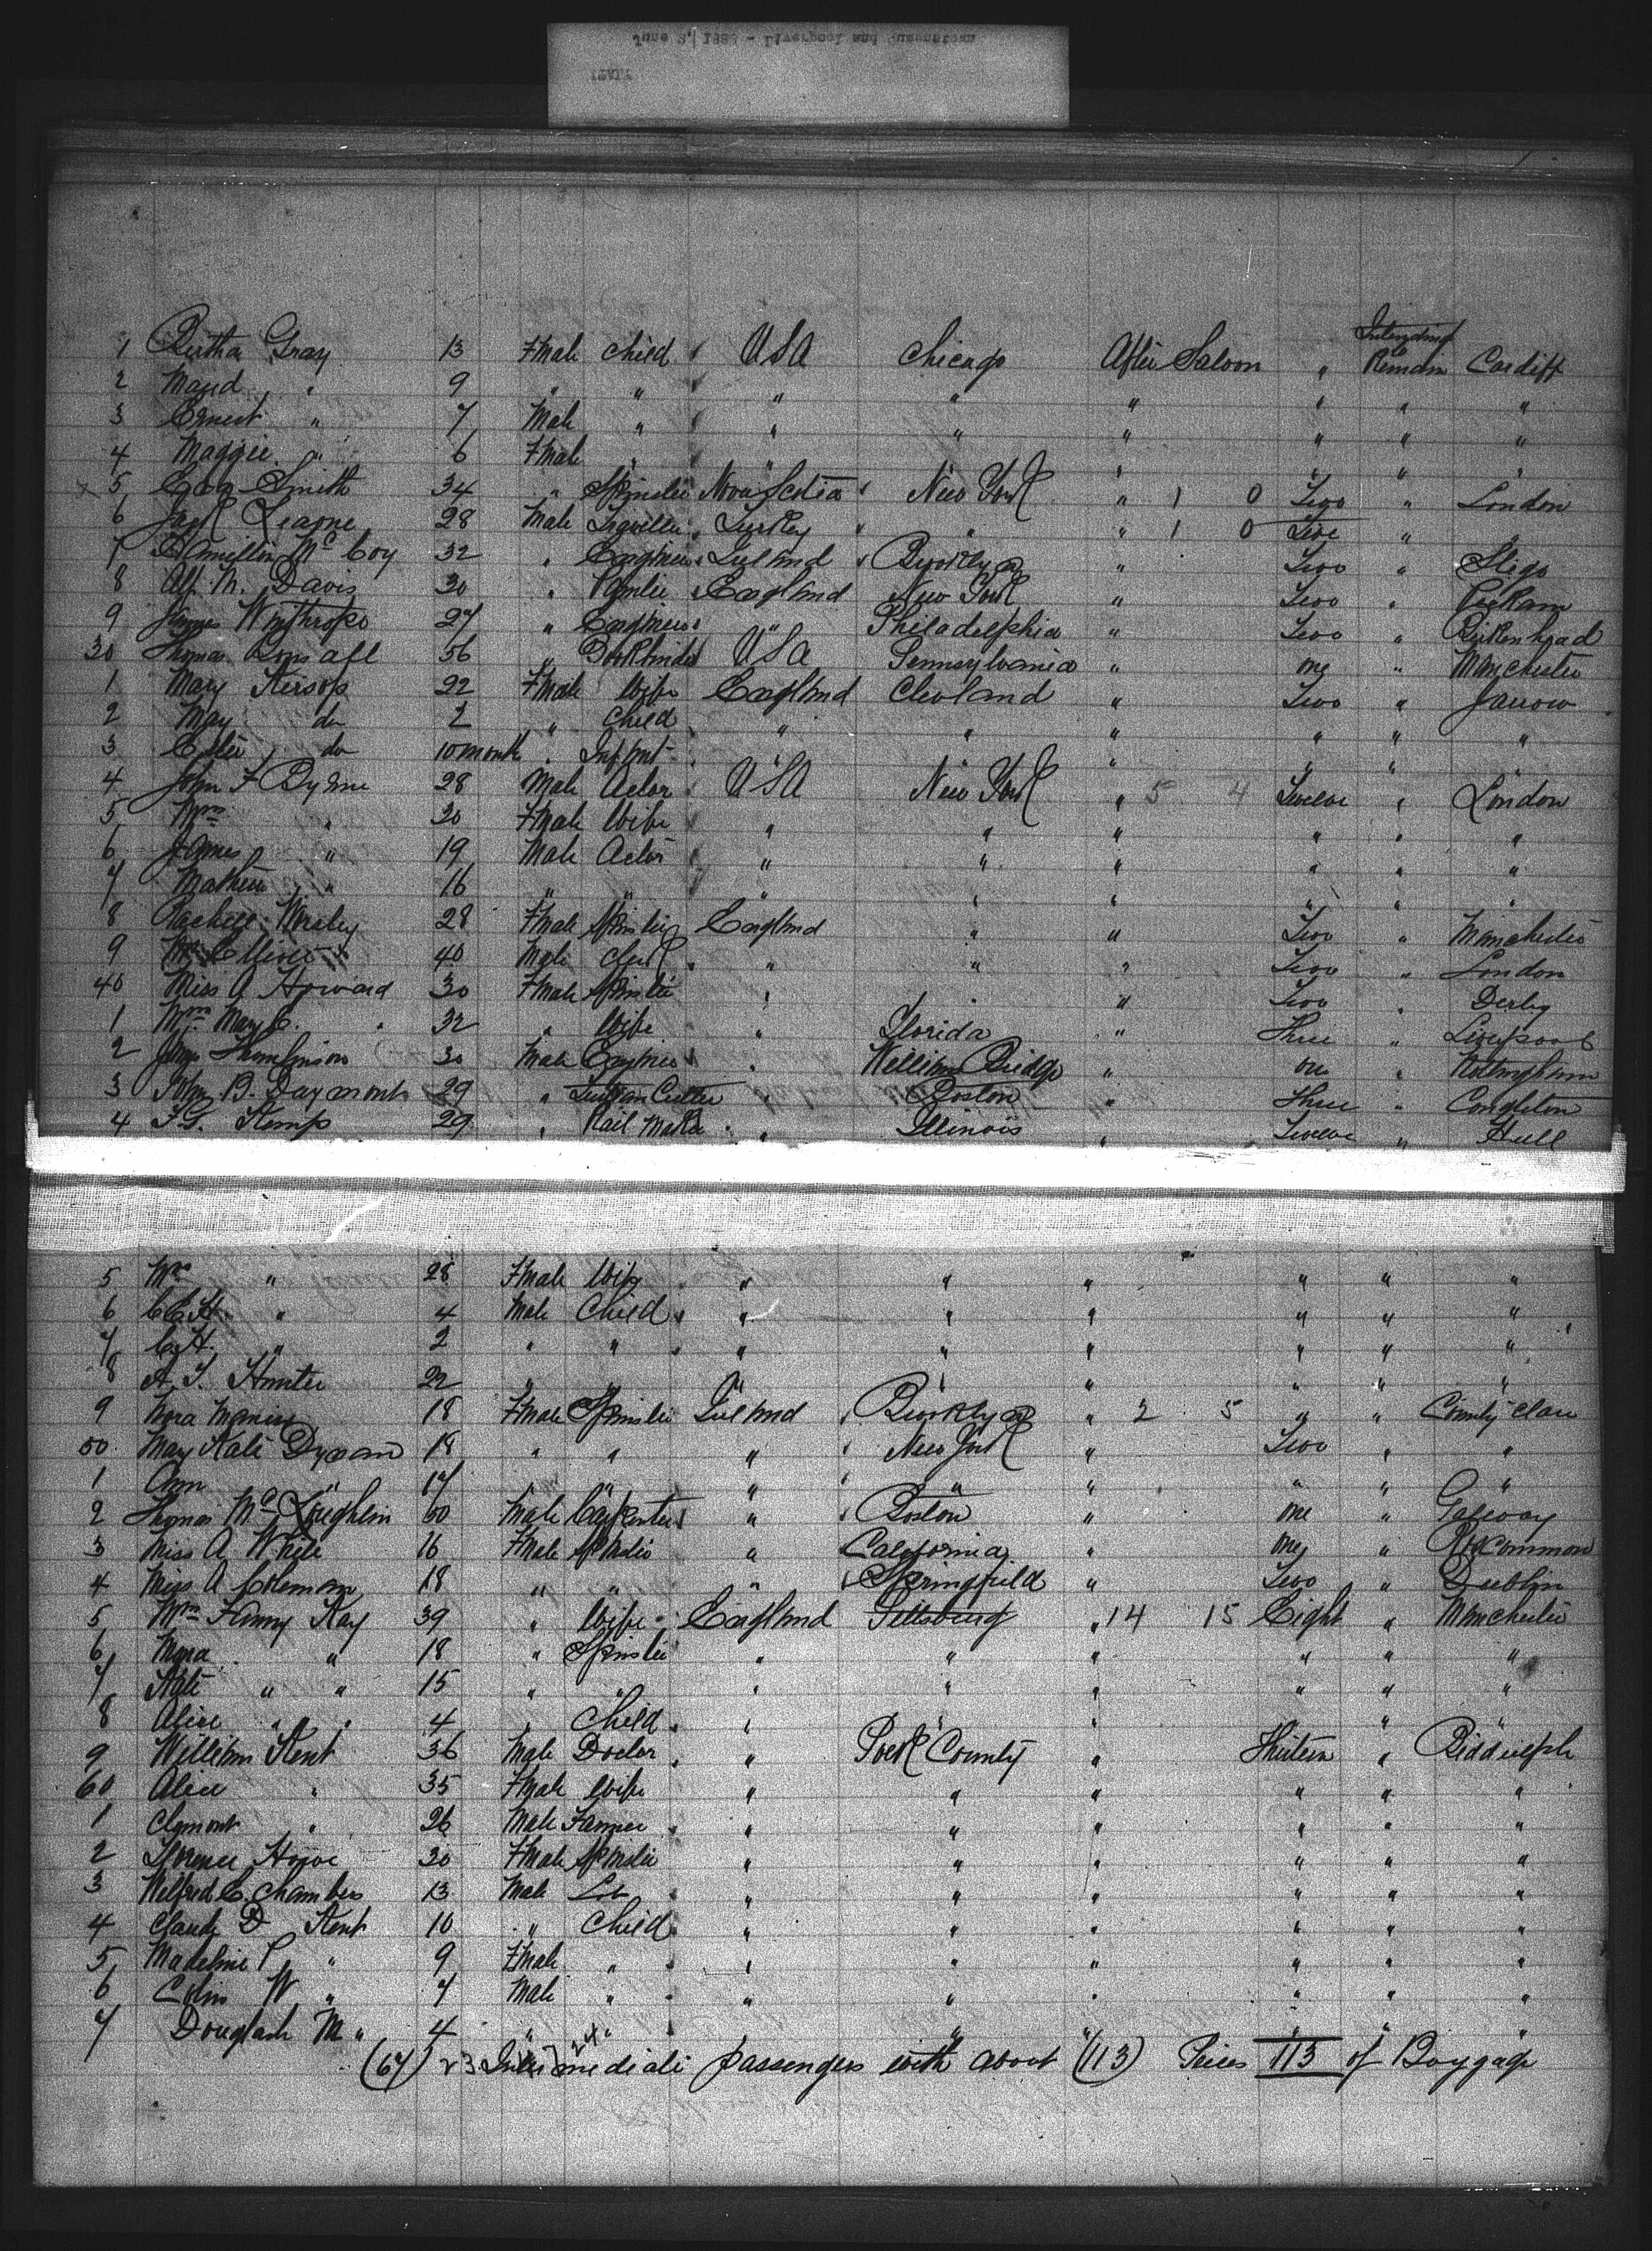 June 8, 1888 - Liverpool and Queenstown
1 Bertha Gray 13 Fmale Child USA Chicago After Saloon " Intending Remain Cardiff
2 Maud " 9 " " " " " " " "
3 Ernest " 7 Male " " " " " " "
4 Maggie " 6 Fmale " " " " " " "
5 Smith 34 " Spinster Nova Scotia New York " 1 0 Two " London
6 Jack 28 Male Traveller Turkey " " 1 0 Five " "
7 McCoy 32 " Engineer Ireland Brooklyn " Two " Sligo
8 Alf. M. Davis 30 " England New York " Two "
9 James Winthrope 27 " Engineer " Philadelphia " Two " Birkenhead
30 Thomas Bonsall 56 " Bookbinder USA Pennsylvania " one " Manchester
1 Mary Kersop 22 Fmale Wife England Cleveland " Two " Jarrow
2 May do 2 " Child " " " " " "
3 do 10 month " Infant " " " " " "
4 John F Byrne 28 Male Actor USA New York " 5 4 Twelve " London
5 Mrs " 20 Fmale Wife " " " " " "
6 James " 19 Male Actor " " " " " "
7 Mathew " 16 " " " " " " " "
8 Worsley 28 Fmale Spinster England " " Two " Manchester
9 40 Male Clerk " " " Two " London
40 Miss A Howard 30 Fmale Spinster " " " Two " Derby
1 Mrs Mary C. " 32 " Wife " Florida " Three " Liverpool
2 Thomlinson 30 Male Engineer " Bridge " one " Nottingham
3 John B. Daymont 29 " Cutter " Boston " Three " Congleton
4 F.G. Kemp 29 " Nail Maker " Illinois " Twelve " Hull
5 Mrs " 28 Fmale Wife " " " " " "
6 " 4 Male Child " " " " " "
7 C.H. " 2 " " " " " " " "
8 A. T. Hunter 22 " " " " " " " "
9 Nora 18 Fmale Spinster Ireland Brooklyn " 2 5 " " County Clare
50 May Kate 18 " " " New York " Two " "
1 Ann " 17 " " " " " " " "
2 Thomas McLoughlin 60 Male Carpenter " Boston " one " Galway
3 Miss A White 16 Fmale Spinster " California " one " Roscommon
4 Miss A Coleman 18 " " " Springfield " Two " Dublin
5 Mrs Fanny Kay 39 " Wife England Pittsburg " 14 15 Eight " Manchester
6 " 18 " Spinster " " " " " "
7 Kate " " 15 " " " " " " " "
8 Alice " " 4 " Child " " " " " "
9 William Kent 36 Male Doctor " Polk County " Thirteen " Biddulph
60 Alice " 35 Fmale Wife " " " " " "
1 Clemont " 26 Male Farmer " " " " " "
2 Florence Howe 30 Fmale Spinster " " " " " "
3 Wilfred C. Chambers 13 Male Lab " " " " " "
4 Claude D Kent 10 " Child " " " " " "
5 Madeline P " 9 Fmale " " " " " " "
6 Colin W " 7 Male " " " " " " "
7 Douglash M " 4 " " " " " " " "
(67) 23 Intermediate 24 passengers with about (113) Peices 113 of Baggage